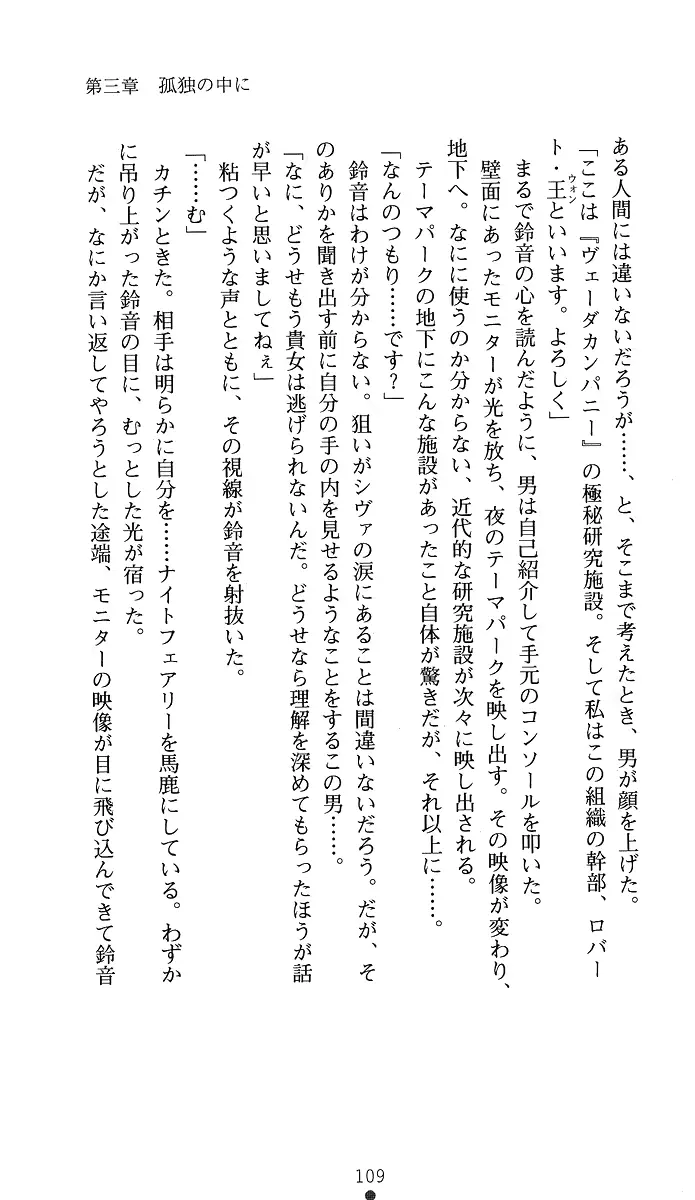 第三章　孤独の中に
ある人間には違いないだろうが……、と、そこまで考えたとき、男が顔を上げた。
「ここは『ヴェーダカンパニー』の極秘研究施設。そして私はこの組織の幹部、ロバー
ト・王といいます。よろしく」
ウォン
まるで鈴音の心を読んだように、男は自己紹介して手元のコンソールを叩いた。
壁面にあったモニターが光を放ち、夜のテーマパークを映し出す。その映像が変わり、
地下へ。なにに使うのか分からない、近代的な研究施設が次々に映し出される。
テーマパークの地下にこんな施設があったこと自体が驚きだが、それ以上に……。
「なんのつもり……です？」
鈴音はわけが分からない。狙いがシヴァの涙にあることは間違いないだろう。だが、そ
のありかを聞き出す前に自分の手の内を見せるようなことをするこの男……。
「なに、どうせもう貴女は逃げられないんだ。どうせなら理解を深めてもらったほうが話
が早いと思いましてねぇ」
粘つくような声とともに、その視線が鈴音を射抜いた。
「……む」
カチンときた。相手は明らかに自分を……ナイトフェアリーを馬鹿にしている。わずか
に吊り上がった鈴音の目に、むっとした光が宿った。
だが、なにか言い返してやろうとした途端、モニターの映像が目に飛び込んできて鈴音
109